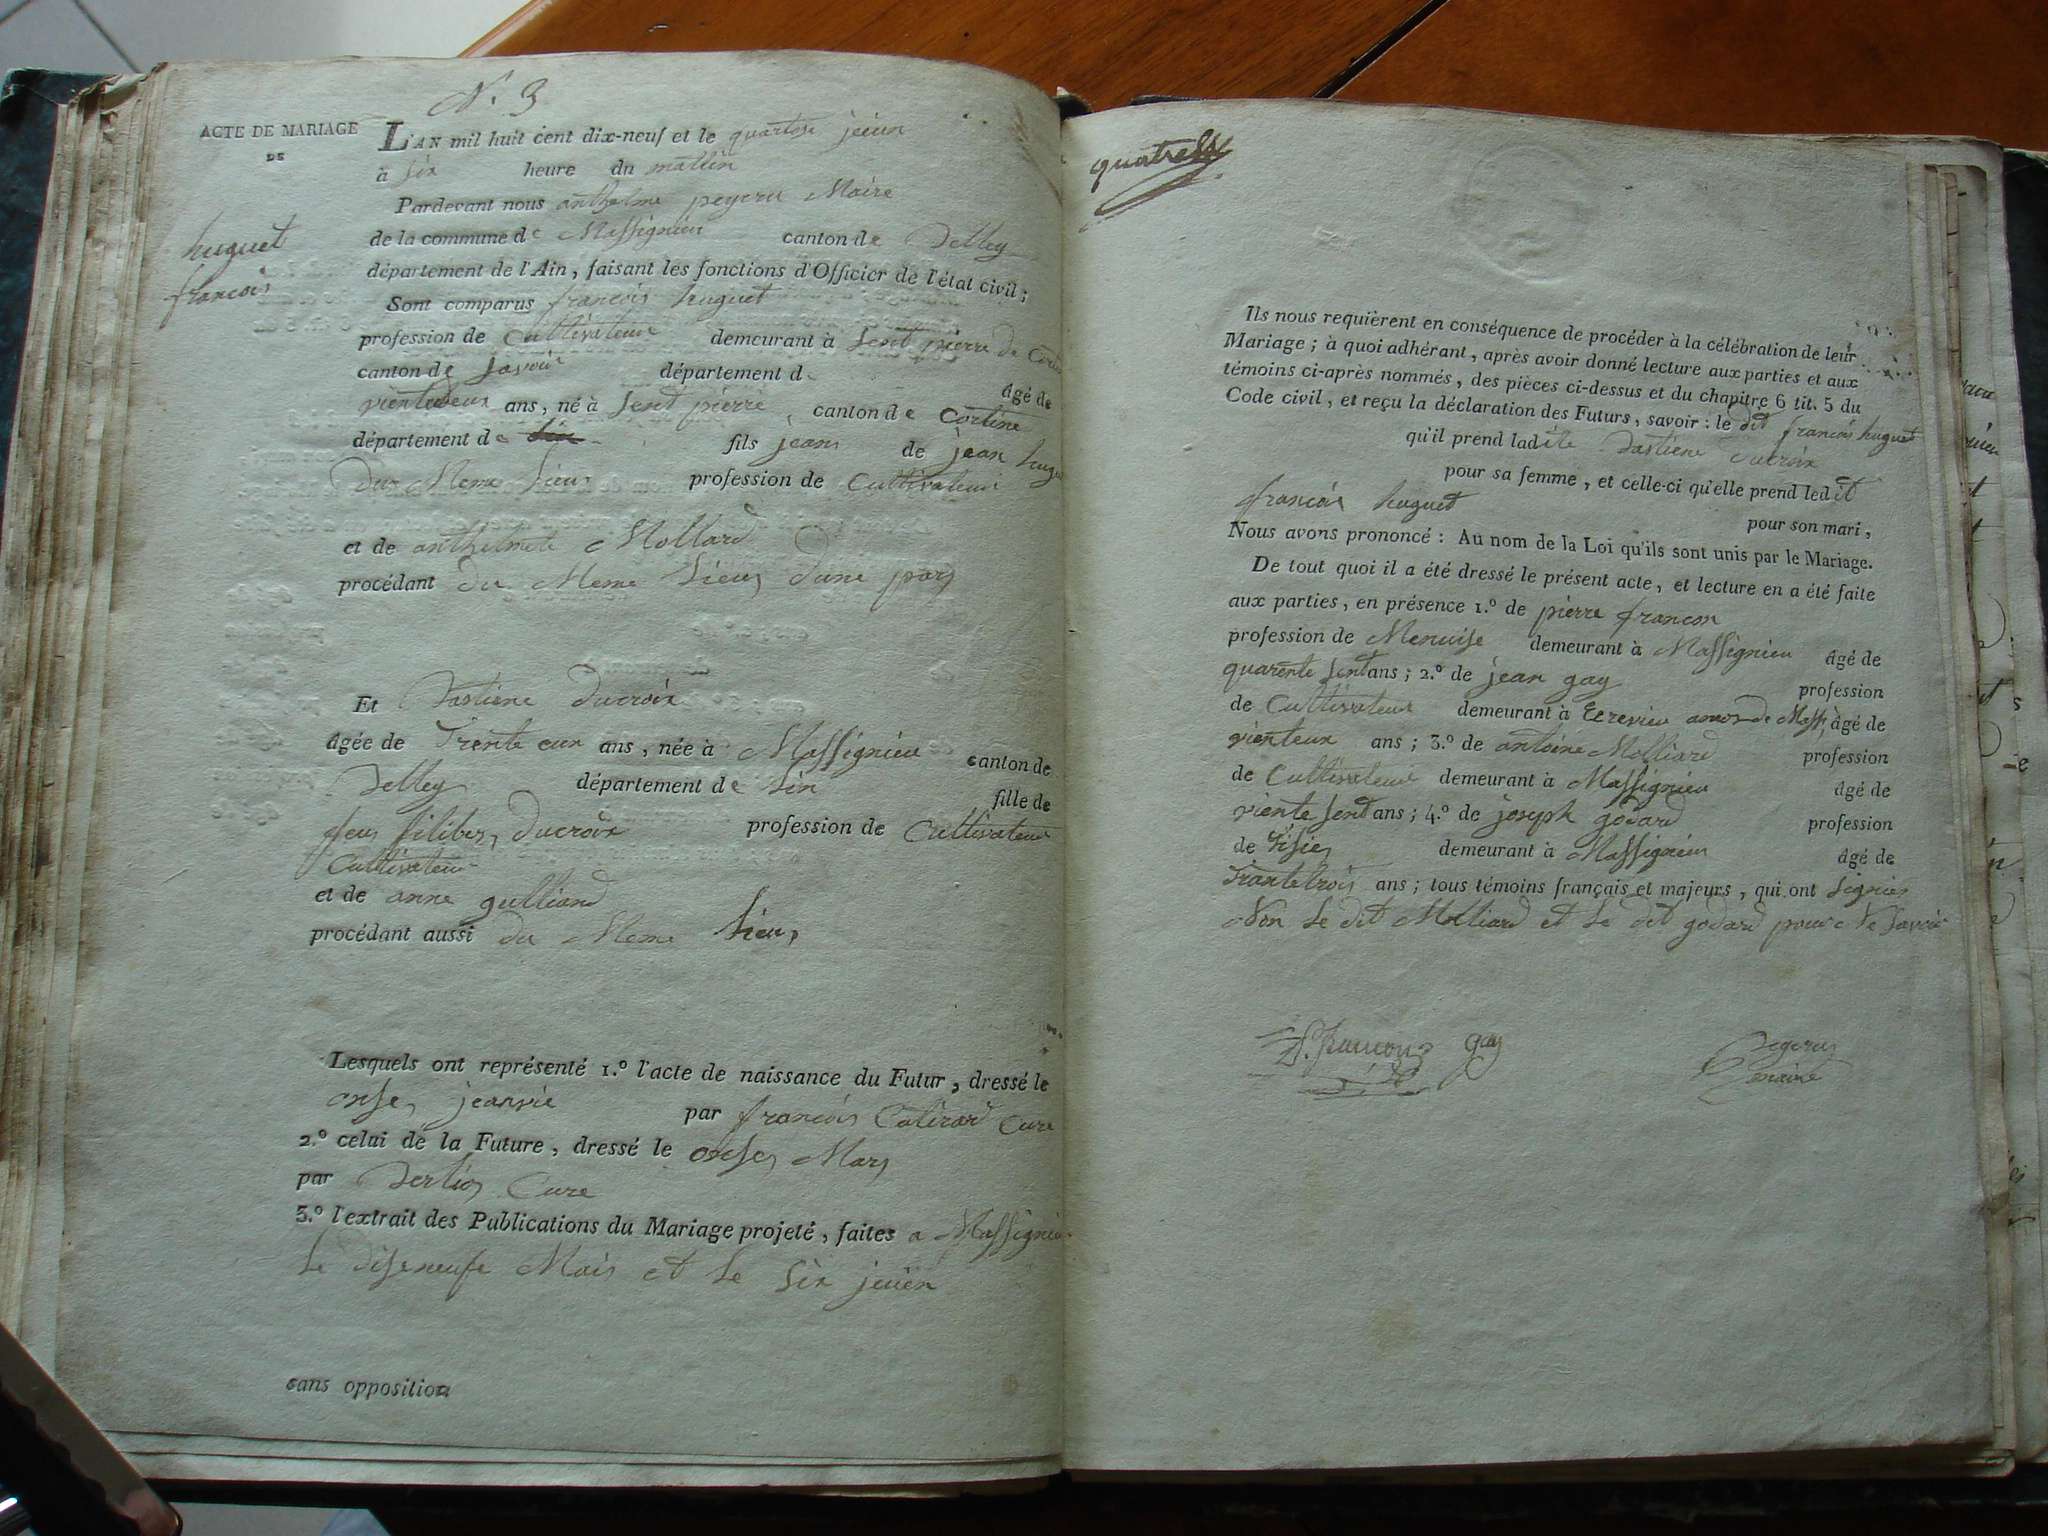 N. 3
ACTE DE MARIAGE
DE
huguet
francois
L'AN mil huit cent dix-neuf et le quartorse jeiun
à six heure du mattin
Pardevant nous anthelme peyeru Maire
de la commune de Massignieu canton de Belley
département de l'Ain, faisant les fonctions d'Officier de l'état civil;
Sont comparus francois huguet
profession de Cultivateur demeurant à sent pierre de
canton de savoie département d
âgé de
vienteux ans, né à sent pierre canton de Cortine
département de fils jeans de jean hugu
du Meme lieus profession de Cultivateur
et de anthelmete Mollard
procédant du Meme lieus dune pars
Et Bastiene ducroix
âgée de Trente eux ans, née à Massignieu canton de
Belley département de lin fille de
feus filibers ducroix profession de Cultivateur
Cultivateur
et de anne gulliand
procédant aussi du Meme lieus
Lesquels ont représenté 1.º l'acte de naissance du Futur, dressé le
onse jeanvie par francois Cure
2.º celui de la Future, dressé le onse Mars
par Cure
3.º l'extrait des Publications du Mariage projeté, faites a Massignieu
le diseneufe Mais et le six jeuien
sans opposition
Ils nous requièrent en conséquence de procéder à la célébration de leur
Mariage; à quoi adhérant, après avoir donné lecture aux parties et aux
témoins ci-après nommés, des pièces ci-dessus et du chapitre 6 tit. 5 du
Code civil, et reçu la déclaration des Futurs, savoir: le dit francois huguet
qu'il prend ladite Bastiene ducroix
pour sa femme, et celle-ci qu'elle prend ledit
francois huguet pour son mari,
Nous avons prononcé: Au nom de la Loi qu'ils sont unis par le Mariage.
De tout quoi il a été dressé le présent acte, et lecture en a été faite
aux parties, en présence 1.º de pierre francon
profession de Menuise demeurant à Massignieu âgé de
quarente sent ans; 2.º de jean gay profession
de Cultivateur demeurant à de Mass, âgé de
vienteux ans; 3.º de antoine Molliard profession
de Cultivateur demeurant à Massignieu âgé de
viente sent ans; 4.º de joseph godard profession
de tisies demeurant à Massignieu âgé de
Trantetrois ans; tous témoins français et majeurs, qui ont signies
Non le dit Molliard et le dit godard pour Ne savoir
francon gay
peyeru
maire